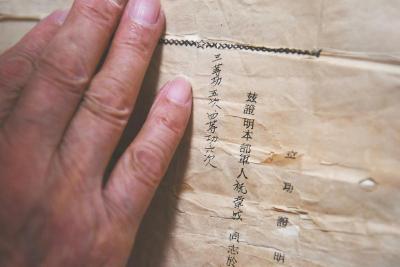 立功證明
茲證明本部軍人 同志於
三等功 五次 四等功六次